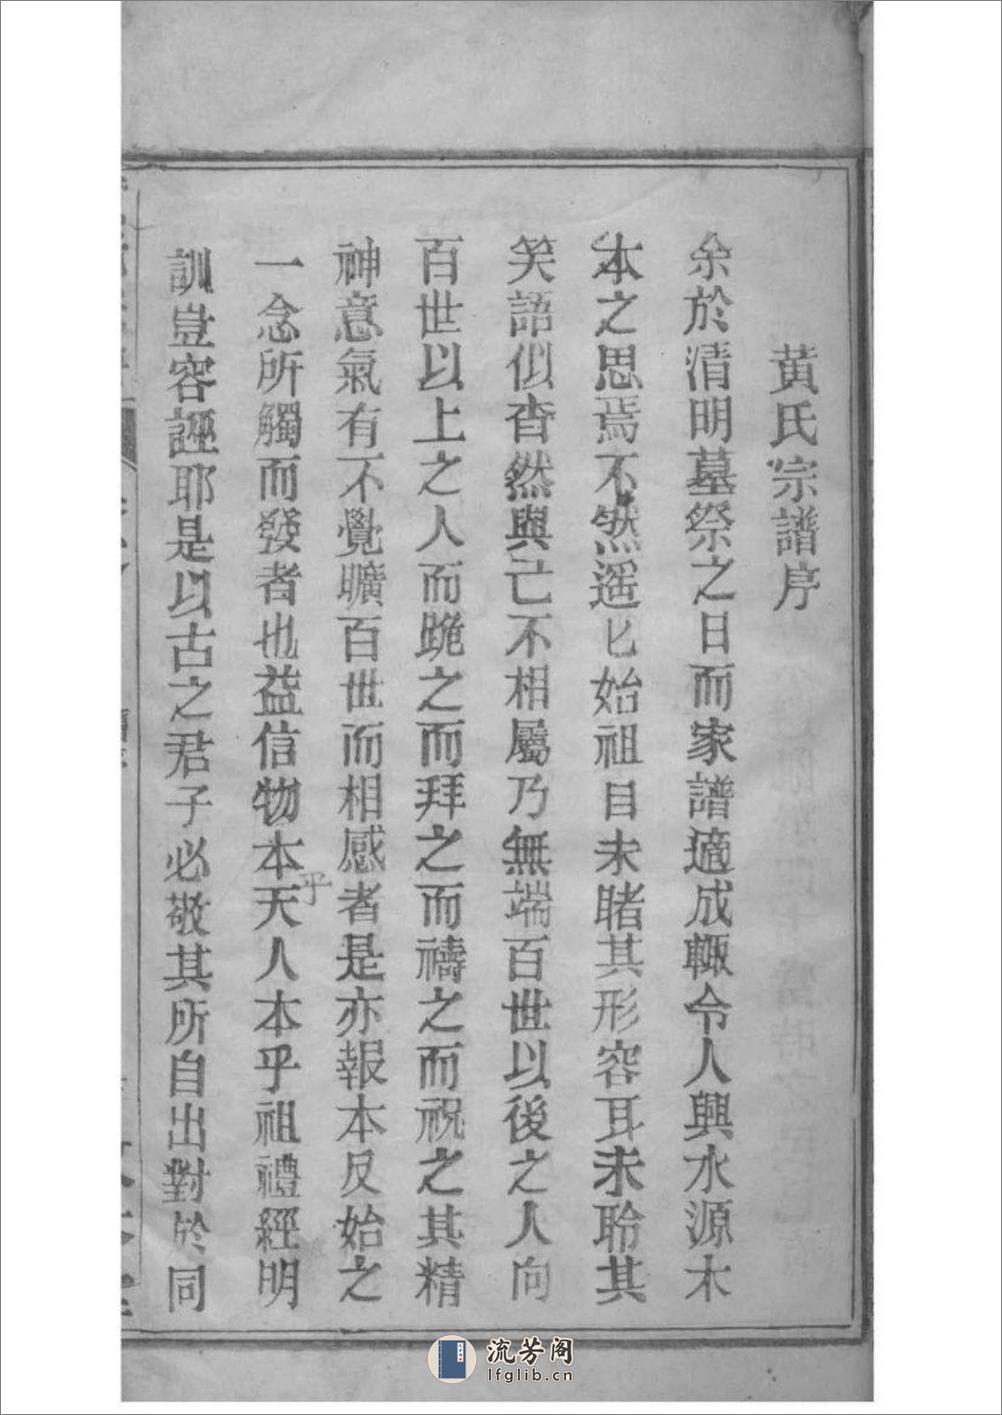 黃氏宗譜序
余於清明墓祭之日而家譜適成輙令人興水源木
本之思焉不然遥匕始祖目未睹其形容耳未聆其
笑語似杳然與己不相屬乃無端百世以後之人向
百世以上之人而跪之而拜之而禱之而祝之其精
神意氣有不覺曠百世而相感者是亦報本反始之
一念所觸而發者也益信物本天人本乎祖禮經明
乎
訓豈容誣耶是以古之君子必敬其所自出對於同
流芳阁
lfglib.cn